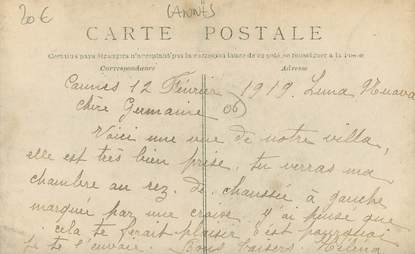 20€
CANNES
CARTE POSTALE
Certains pays étrangers n'acceptant pas la correspondance de ce côté, se renseigner à la Poste
Correspondance
Adresse
Cannes 12 Février 1919. Luna Nuova
chère Germaine
06
Voici une vue de notre villa,
elle est très bien prise. tu verras ma
chambre au rez-de-chaussée à gauche
marquée par une croix. J'ai pensé que
cela te ferait plaisir c'est pourquoi
je te l'envoie. Bons baisers. Hélène